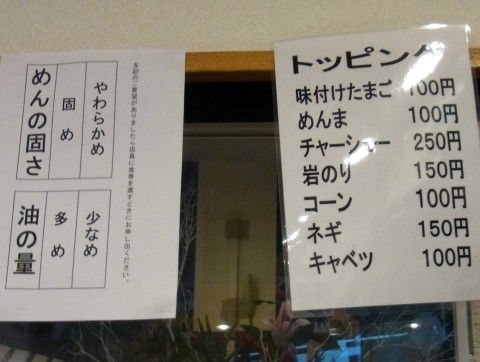 めんの固さ
固め
やわらかめ
油の量
多め
少なめ
左記のご要望がありましたら店員に食券を渡すときにお申し出ください。
トッピング
味付けたまご 100円
めんま 100円
チャーシュー 250円
岩のり 150円
コーン 100円
ネギ 150円
キャベツ 100円